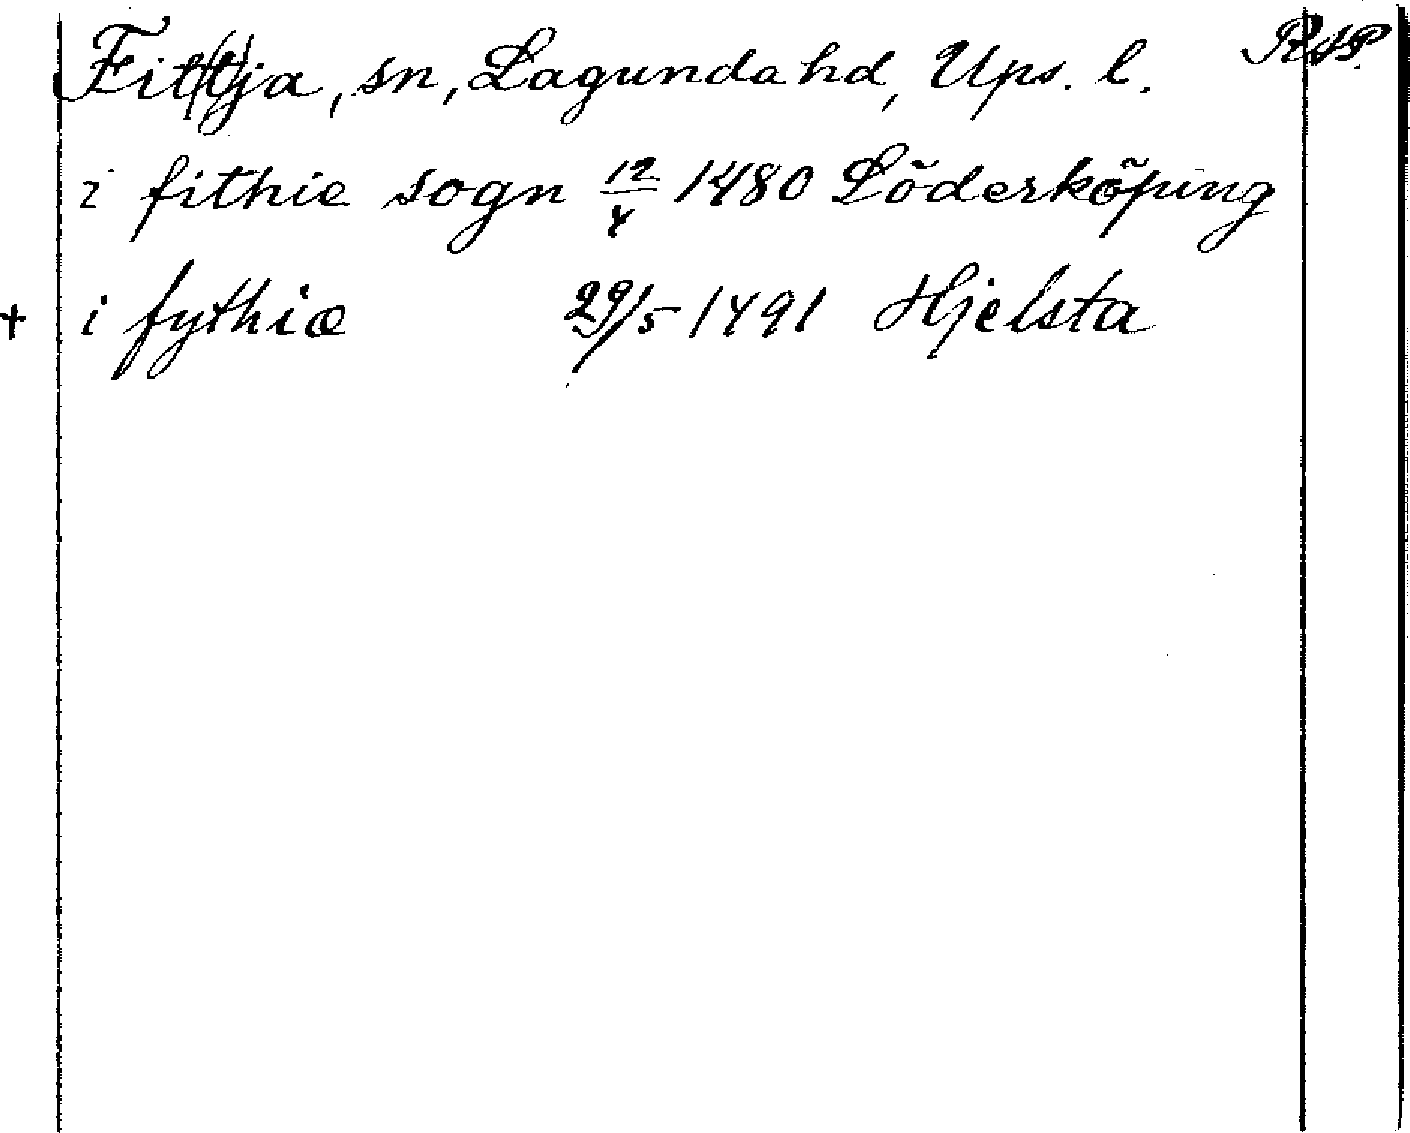 Fit(t)ja, sn, Lagunda hd, Ups. l. RAP.
i fithie sogn 12/4 1480 Söderköping
+ i fythiæ 29/5 1491 Hjelsta